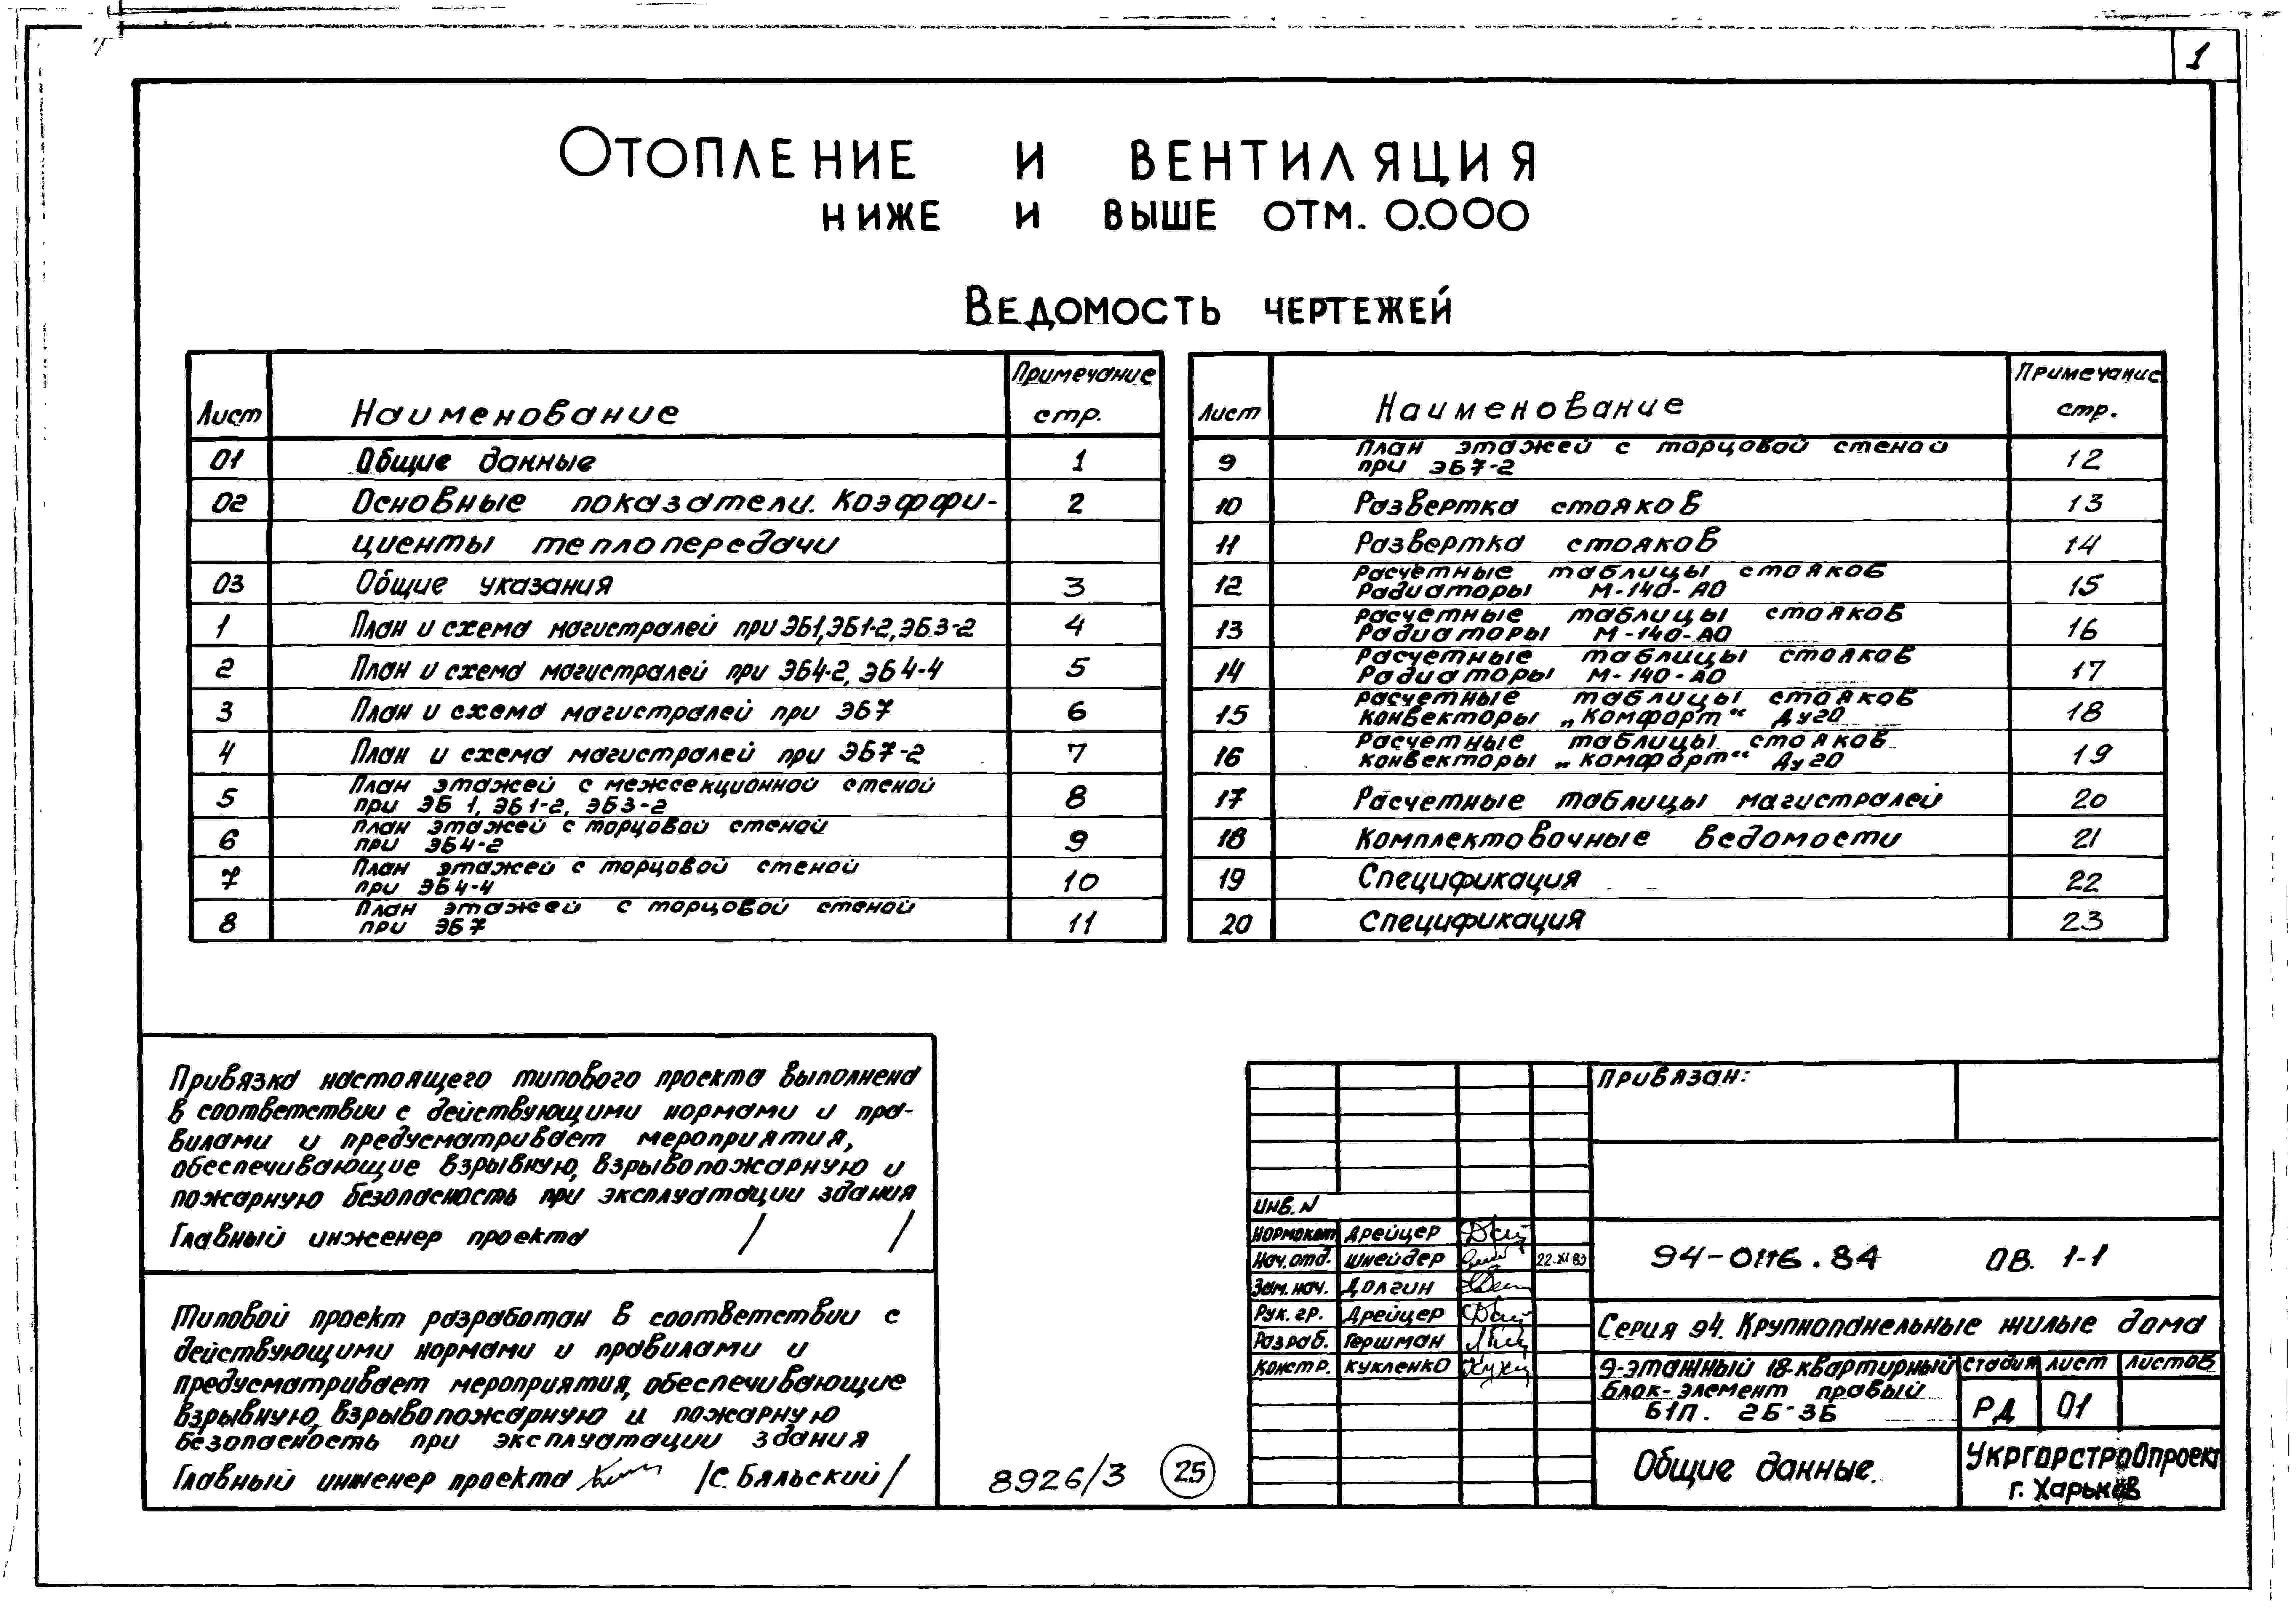 1
Отопление и вентиляция
ниже и выше отм. 0.000
Ведомость чертежей
Лист Наименование Примечание стр.
01 Общие данные 1
02 Основные показатели. Коэффи- 2
циенты теплопередачи
03 Общие указания 3
1 План и схема магистралей при ЭБ1, ЭБ1-2, ЭБ3-2 4
2 План и схема магистралей при ЭБ4-2, ЭБ4-4 5
3 План и схема магистралей при ЭБ7 6
4 План и схема магистралей при ЭБ7-2 7
5 План этажей с межсекционной стеной
при ЭБ 1, ЭБ1-2, ЭБ3-2 8
6 План этажей с торцовой стеной
при ЭБ4-2 9
7 План этажей с торцовой стеной
при ЭБ4-4 10
8 План этажей с торцовой стеной
при ЭБ7 11
Лист Наименование Примечание стр.
9 План этажей с торцовой стеной
при ЭБ7-2 12
10 Развертка стояков 13
11 Развертка стояков 14
12 Расчетные таблицы стояков
Радиаторы М-140-АО 15
13 Расчетные таблицы стояков
Радиаторы М-140-АО 16
14 Расчетные таблицы стояков
Радиаторы М-140-АО 17
15 Расчетные таблицы стояков
Конвекторы „Комфорт“ Ду20 18
16 Расчетные таблицы стояков
Конвекторы „Комфорт“ Ду20 19
17 Расчетные таблицы магистралей 20
18 Комплектовочные ведомости 21
19 Спецификация 22
20 Спецификация 23
Привязка настоящего типового проекта выполнена
в соответствии с действующими нормами и пра-
вилами и предусматривает мероприятия,
обеспечивающие взрывную, взрывопожарную и
пожарную безопасность при эксплуатации здания
Главный инженер проекта / /
Типовой проект разработан в соответствии с
действующими нормами и правилами и
предусматривает мероприятия, обеспечивающие
взрывную, взрывопожарную и пожарную
безопасность при эксплуатации здания
Главный инженер проекта /С. Бяльский/
8926/3 25
Привязан:
Инв. N
Нормоконт Дрейцер
Нач. отд. Шнейдер 22.XI 83
Зам. нач. Долгин
Рук. гр. Дрейцер
Разраб. Гершман
Констр. Кукленко
94-0116.84 ОВ. 1-1
Серия 94. Крупнопанельные жилые дома
9-этажный 18-квартирный
блок-элемент правый
Б1П. 2Б-3Б
стадия лист листов
РД 01
Общие данные.
Укргорстройпроект
г. Харьков